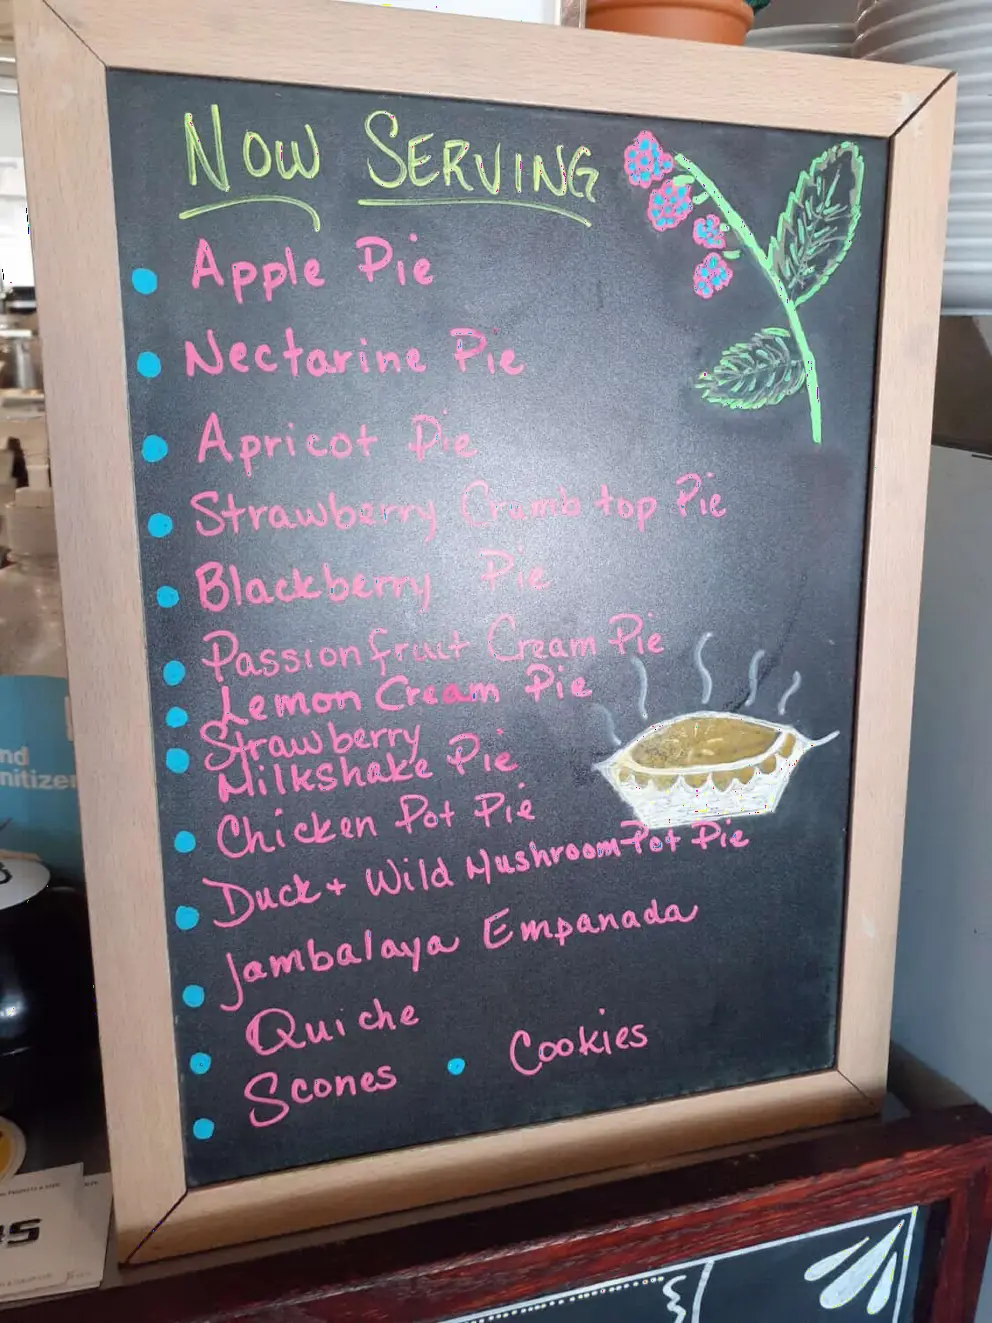 NOW SERVING
Apple Pie
Nectarine Pie
Apricot Pie
Strawberry Crumb top Pie
Blackberry Pie
Passionfruit Cream Pie
Lemon Cream Pie
Strawberry
Milkshake Pie
Chicken Pot Pie
Duck + Wild Mushroom Pot Pie
Jambalaya Empanada
Quiche
Scones • Cookies
nd
nitizer